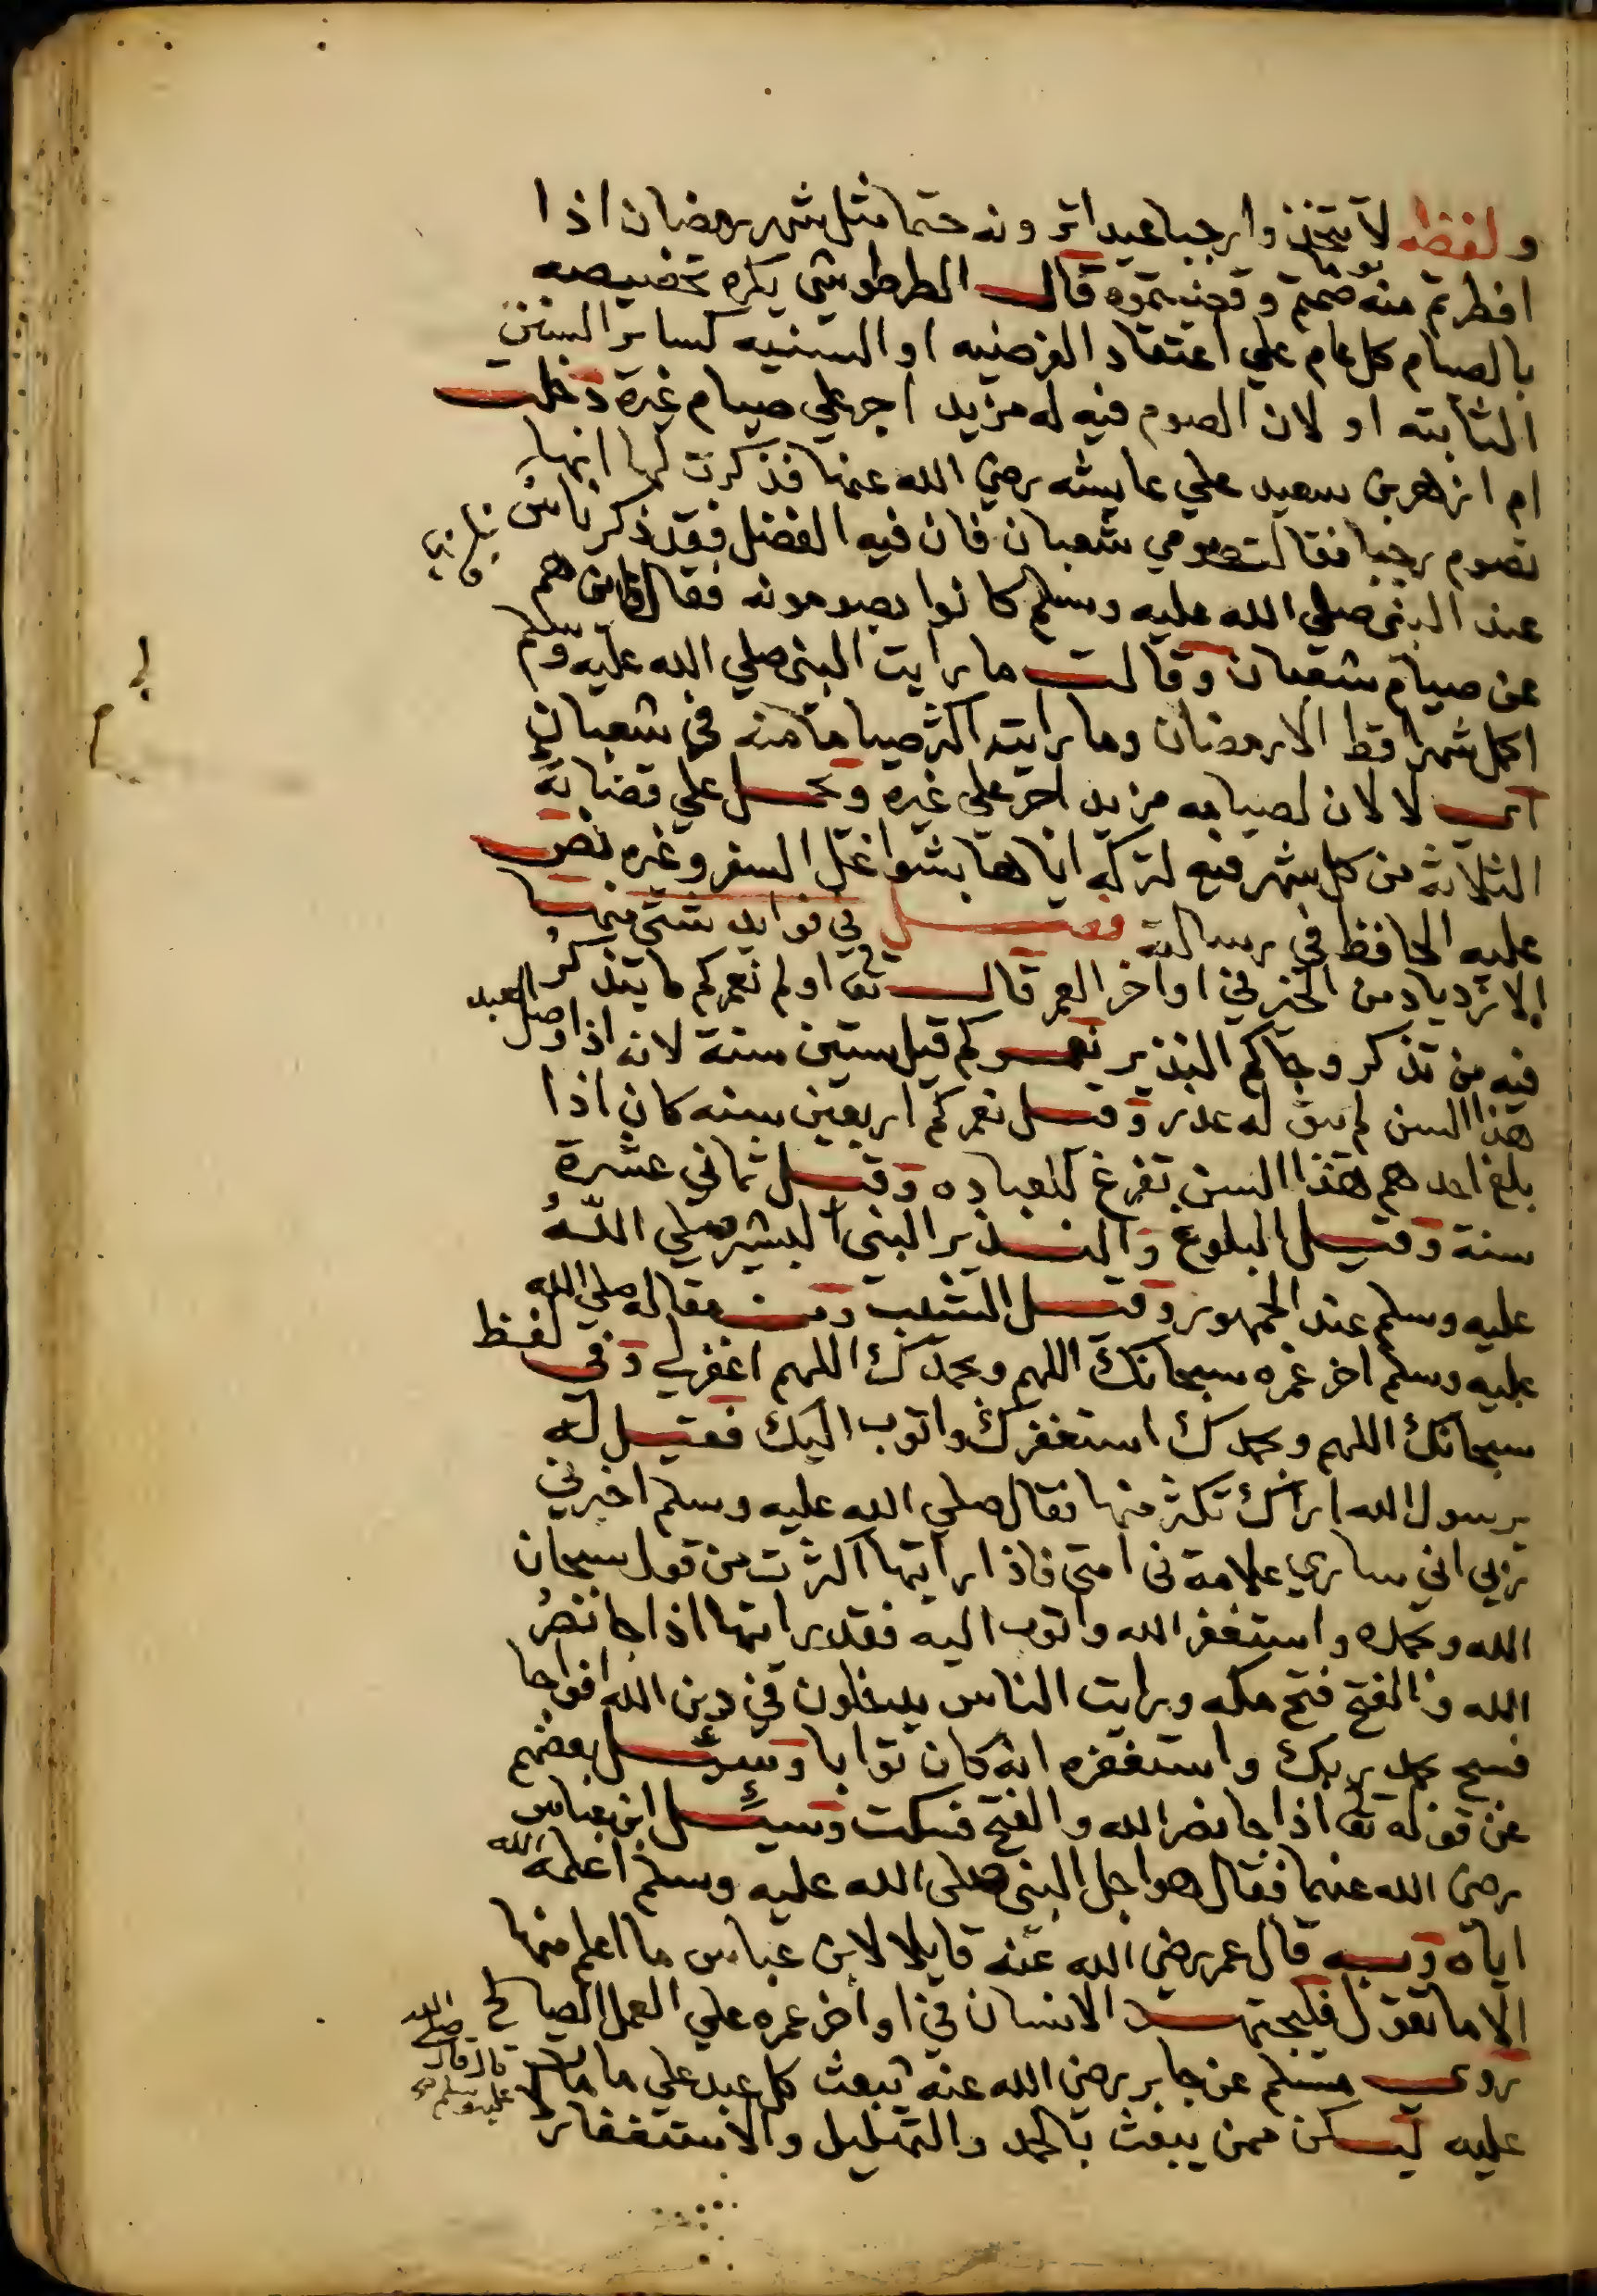 ولفظه لا تتخذوا رجبا عيدا ترونه حتما مثل شهر رمضان اذا
افطرتم منه يوما صمتم وقضيتموه قال الطرطوشي يكره تخصيصه
بالصيام كل عام علي اعتقاد الفرضيه او السنيه كساير السنن
الثابته او لان الصوم فيه له مزيد اجر علي صيام غيره دخلت
ام ازهر بن سعيد علي عايشه رضي الله عنها فذكرت لها انها
تصوم رجبا فقالت صومي شعبان فان فيه الفضل فقد ذكر ناس
عند النبي صلي الله عليه وسلم كانوا يصومونه فقال فاين هم
عن صيام شعبان وقالت ما رايت النبي صلي الله عليه وسلم
اكمل شهرا قط الا رمضان وما رايته اكثر صياما منه في شعبان
اي لا لان لصيامه مزيد اجر علي غيره وحمل علي قضايه
الثلاثة من كل شهر فيه لتركه اياها بشواغل السفر وغيره نص
عليه الحافظ في رسالته فصل في فوايد شتي منها
الازدياد من الخير في اواخر العمر قال تعا اولم نعمركم ما يتذكر
فيه من تذكر وجاكم النذير نعمركم قيل ستين سنة لانه اذا وصل العبد
هذا السن لم يبق له عذر وقيل نعمركم اربعين سنه كان اذا
بلغ احدهم هذا السن تفرغ للعباده وقيل ثماني عشرة
سنة وقيل البلوغ والنذير النبي البشير صلي اللهُ
عليه وسلم عند الجمهور وقيل الشيب ومن مقاله صلي الله
عليه وسلم اخر عمره سبحانك اللهم وبحمدك اللهم اغفر لي وفي لفظ
سبحانك اللهم وبحمدك استغفرك واتوب اليك فقيل له
يرسول الله اراك تكثر منها فقال صلي الله عليه وسلم اخبرني
ربي اني ساري علامة في امتي فاذا رايتها اكثرت من قول سبحان
الله وبحمده واستغفر الله واتوب اليه فقد رايتها اذا جا نصرُ
الله والفتح فتح مكه ورايت الناس يدخلون في دين الله افواجا
فسبح بحمد ربك واستغفره انه كان توابا وسئل بعضهم
عن قوله تعا اذا جا نصر الله والفتح فسكت وسئل ابن عباس
رضي الله عنهما فقال هو اجل النبي صلي الله عليه وسلم اعلمه الله
اياه وبه قال عمر رضي الله عنه قايلا لابن عباس ما اعلم منها
الا ما تقول فليجتهد الانسان في اواخر عمره علي العمل الصالح
روي مسلم عن جابر رضي الله عنه قال قال صلي الله عليه وسلم يبعث كل عبد علي ما مات
عليه ليكن ممن يبعث بالحمد والتهليل والاستغفار